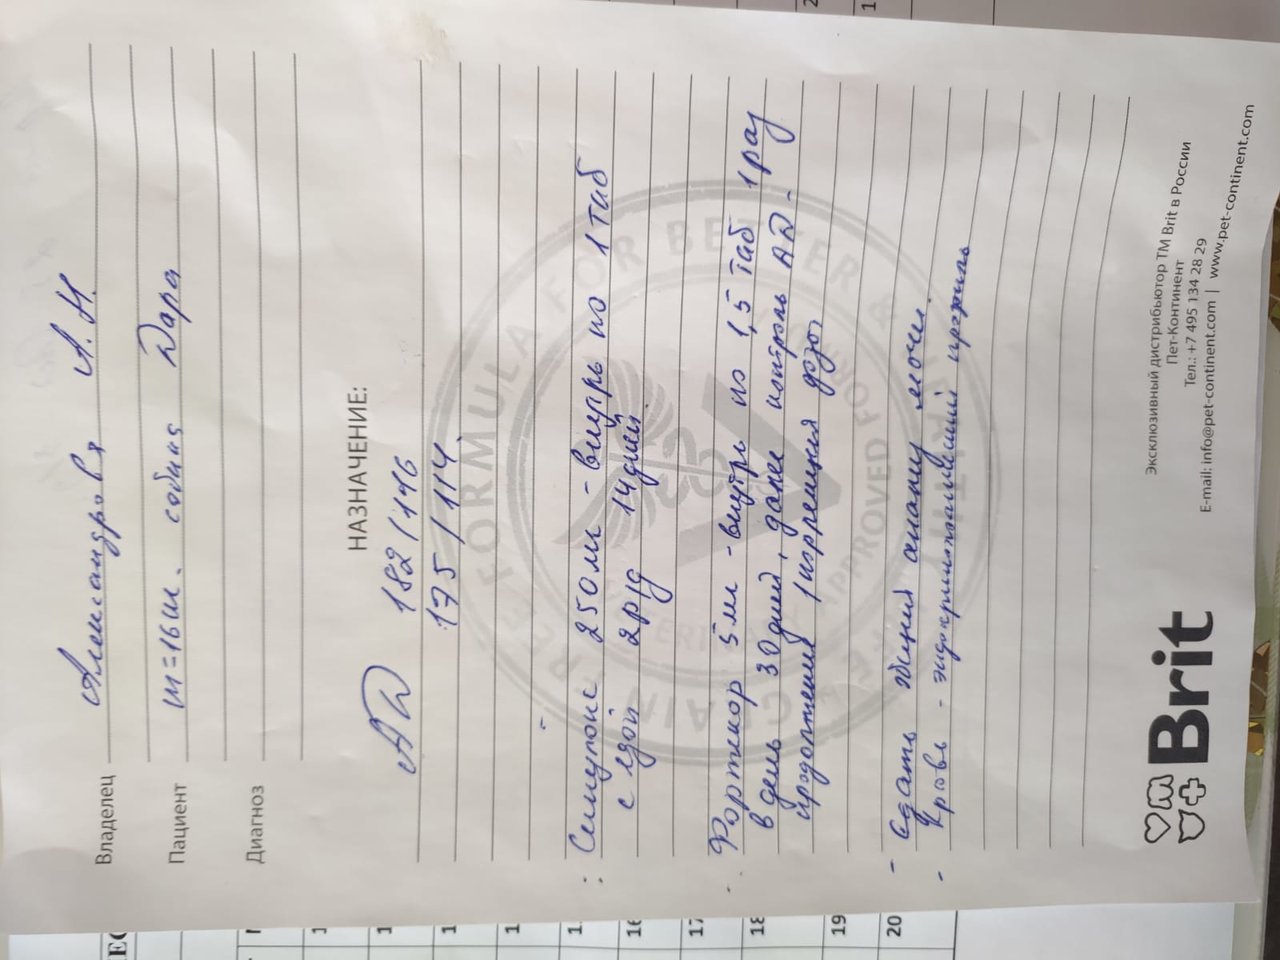 Владелец Александрова А.Н.
Пациент m=16кг. собака Дара
Диагноз
НАЗНАЧЕНИЕ:
АД 182/146
175/114
Синулокс 250мг - внутрь по 1 таб
с едой 2р/д 14 дней.
Фортекор 5мг - внутрь по 1,5 таб 1 раз
в день 30 дней, далее контроль АД -
продолжение / коррекция дозы
- Сдать общий анализ мочи.
- Кровь - эндокринологический профиль
GRAIN FREE FORMULA FOR BETTER &
VETERINARY APPROVED FORMULA
Brit
Эксклюзивный дистрибьютор ТМ Brit в России
Пет-Континент
Тел.: +7 495 134 28 29
E-mail: info@pet-continent.com | www.pet-continent.com
16
17
18
19
20